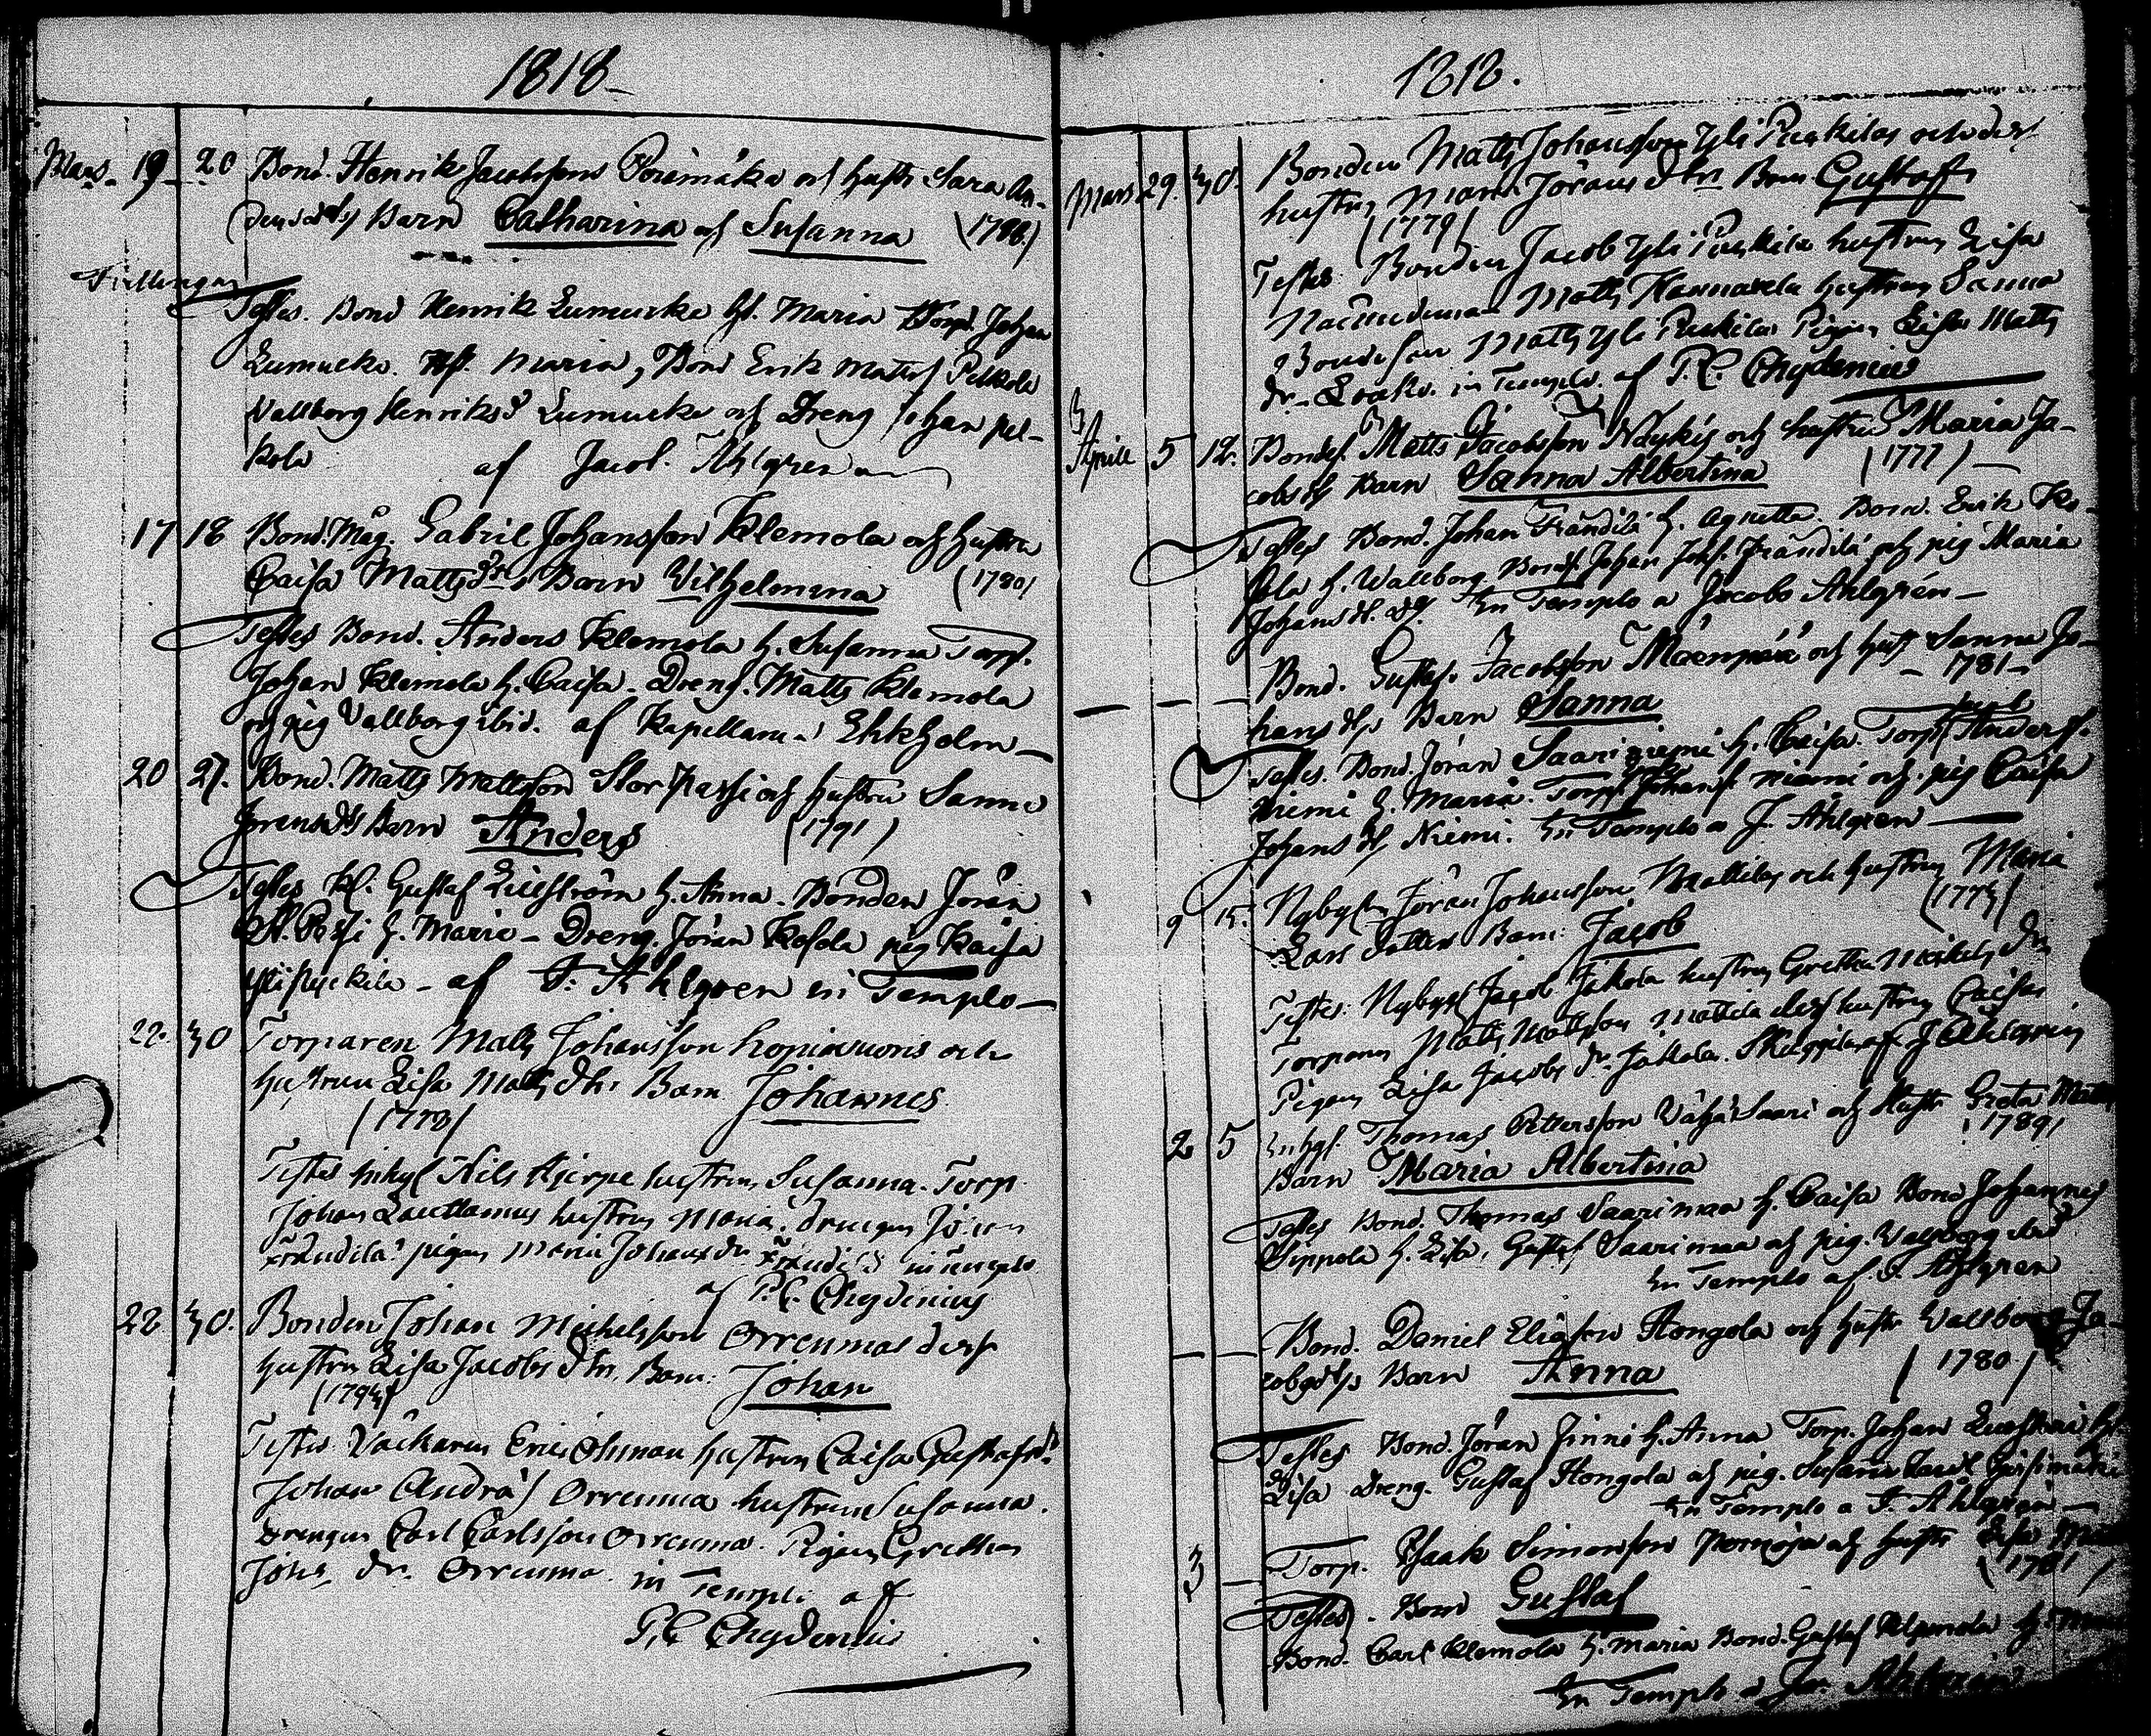 1818
Mars 19 20 Bond. Henrik Jacobssons Porimäka och hustr. Sara An-
dersd:rs Barn Catharina och Susanna (1786.)
Tvillingar
Testes. Bond Henrik Lumucka h. Maria Torp. Johan
Lumucka. Hst. Maria, Bond Erik Matts Pelkola
Vallborg Henriksd Lumucka och Dreng Johan pel-
kola af Jacob. Ahlgren
17 18 Bond. Måg. Gabriel Johansson Klemola och hustru
Caisa Mattsdr. Barn Wilhelmina (1780)
Testes Bond. Anders Klemola h. Susanna Torp.
Johan Klemola h. Caisa. Dreng. Matts Klemola
och pig Vallborg ibid. af Kapellanen Ehkholm
20 27. Bond. Matts Mattsson Stor Passi och hustru Sanna
Jöransdrs Barn Anders (1791)
Testes Kl. Gustaf Liljeström h. Anna. Bonden Jöran
St. Passi h. Maria - Dreng. Jöran Kosola pig Kaisa
yli Puskila - af J. Ahlgren in Templo
22. 30 Torparen Matts Johansson och
hustrun Lisa Matts dtr Barn Johannes
(1773)
Testes Inhys Nils Kjerpe hustrun Susanna. Torp.
Johan Lauttamus hustrun Maria. drengen Jöran
Frändilä pigan Maria Johans dr. Frändilä in templo
af P. C. Chydenius
22 30. Bonden Johan Michelsson Orrenmaa dess
hustrun Lisa Jacobs dtr. Barn: Johan
(1794)
Testes Eric hustrun Caisa Gustafsd.
Johan Andrs Orrenmaa hustrun Susanna.
drengen Carl Carlsson Orrenmaa. Pigan Gretha
Johs dr. Orrenmaa in Templo af
P. C. Chydenius
1818.
Mars 29. 30. Bonden Matts Johansson Yli Puskilas och dess
hustru Maria Jörans dtrs Barn Gustaff
(1779)
Testes. Bonden Jacob Yli Puskila hustrun Lisa
Nämndeman Matts Kannasela hustrun Sanna
Bondeson Matts Yli Puskila Pigan Lisa Matts
dr. in Templo. af P. C. Chydenius
Aprill 5 12. Bondes. Matts Jacobsson Näykis och hustru Maria Ja-
cobsds Barn Sanna Albertina (1777)
Testes Bond. Johan Frändilä h. Agnetta. Bond. Erik Ko-
sola h. Wallborg Bonds. Johan Johs. Frändilä och pig Maria
Johansd. In Templo a Jacobo Ahlgrén
Bond. Gustaf Jacobsson Mäenpää och hust Sanna Jo-
hansdrs Barn Sanna - 1781 -
Testes. Bond. Jöran Saariniemi h. Caisa. Torp. Anders
niemi h. Maria. Torp. Johan niemi och pig Caisa
Johansd. Niemi. In Templo a J. Ahlgren
9 15. Nybygg. Jöran Johansson Mattilas och hustrun Maria
Lars dotters Barn: Jacob (1773)
Testes: Nybygg. Jacob Jakola hustrun Gretha Michels dr
Torparen Matts Mattsson Mattila dess hustrun Caisa
Pigan Lisa Jacobs dr. Jakola. af J. Ahlgren
2 5 Inhys. Thomas Pettersson Vähä Saari och Hustr Greta Matts
Barn Maria Albertina 1789
Testes Bond. Thomas Saarimaa h. Caisa Bond Johannes
Sippola h. Lisa. Gustaf Saarimaa och pig. Valborg ibid
In Templo af J. Ahlgren
Bond. Daniel Eliasson Hongola och hustr Wallborg Ja-
cobsdrs Barn Anna (1780)
Testes Bond. Jöran Finni h. Anna Torp. Johan h.
Lisa Dreng. Gustaf Hongola och pig. Susanna
In Templo a J. Ahlgren
3 Torp. Isaak Simonsson och hustr Lisa
(1781)
Testes. Barn Gustaf
Bond. Carl Klemola h. Maria Bond. Gustaf Klemola h.
In Templo a Jac. Ahlgren